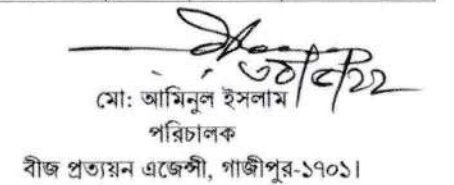 ৩০/৫/২২
মো: আমিনুল ইসলাম
পরিচালক
বীজ প্রত্যয়ন এজেন্সী, গাজীপুর-১৭০১।